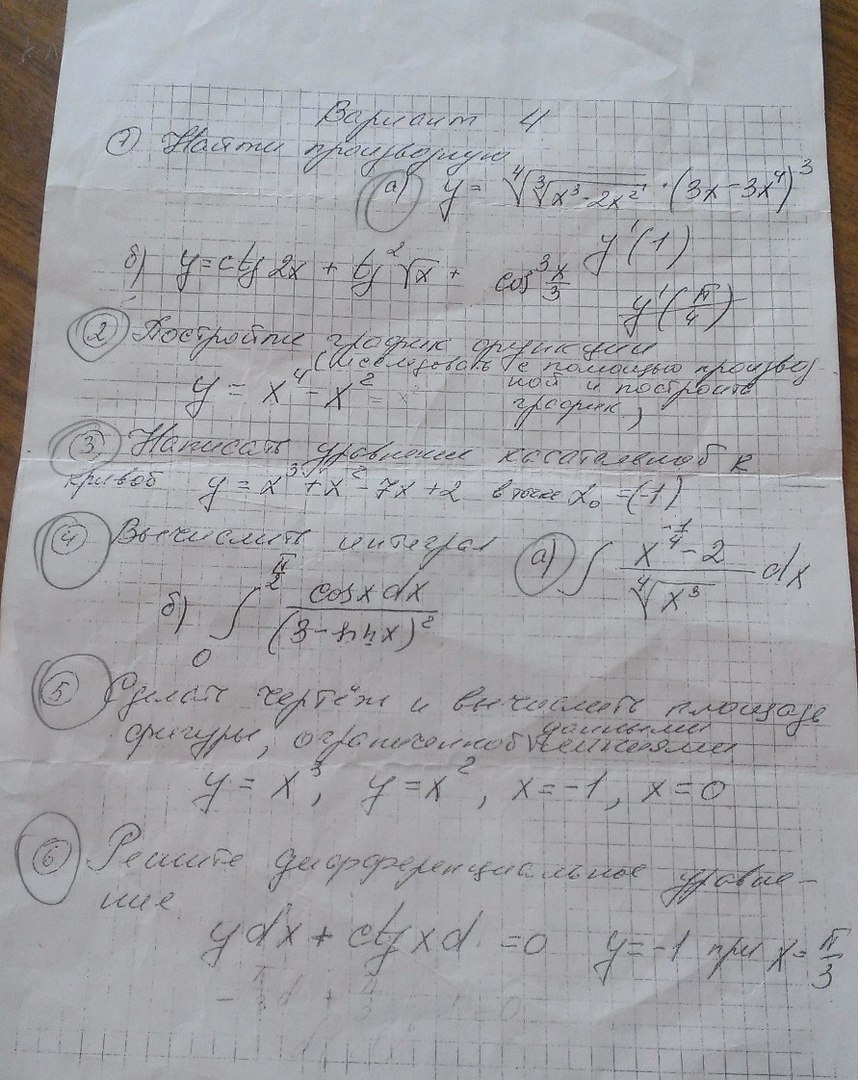 Вариант 4
① Найти производную
а) y = ∜(∛(x³-2x²)) · (3x-3x⁴)³
y'(1)
б) y = ctg 2x + tg²√x + cos³ x/3
y'(π/4)
② Постройти график функции
(Исследовать с помощью производ
ной и построить
график)
y = x⁴ - x²
③ Написать уравнение касательной к
кривой y = x³ + x² - 7x + 2 в точке x₀ = (-1)
④ Вычислить интеграл
а) ∫ (x^(-1/4) - 2)/∜(x³) dx
б) ∫₀^(π/2) cosx dx/(3 - sinx)²
⑤ Сделать чертёж и вычислить площадь
фигуры, ограниченной данными линиями
y = x³, y = x², x = -1, x = 0
⑥ Решите дифференциальное уравне-
ние
ydx + ctg x d = 0 y = -1 при x = π/3